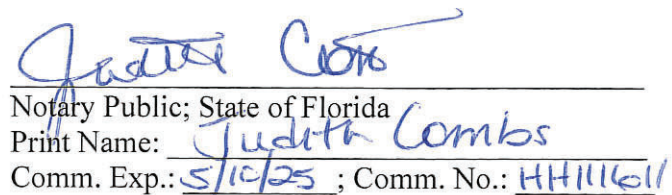 Judith
Notary Public; State of Florida
Print Name: Judith Combs
Comm. Exp.: 5/10/25 ; Comm. No.: HH111601